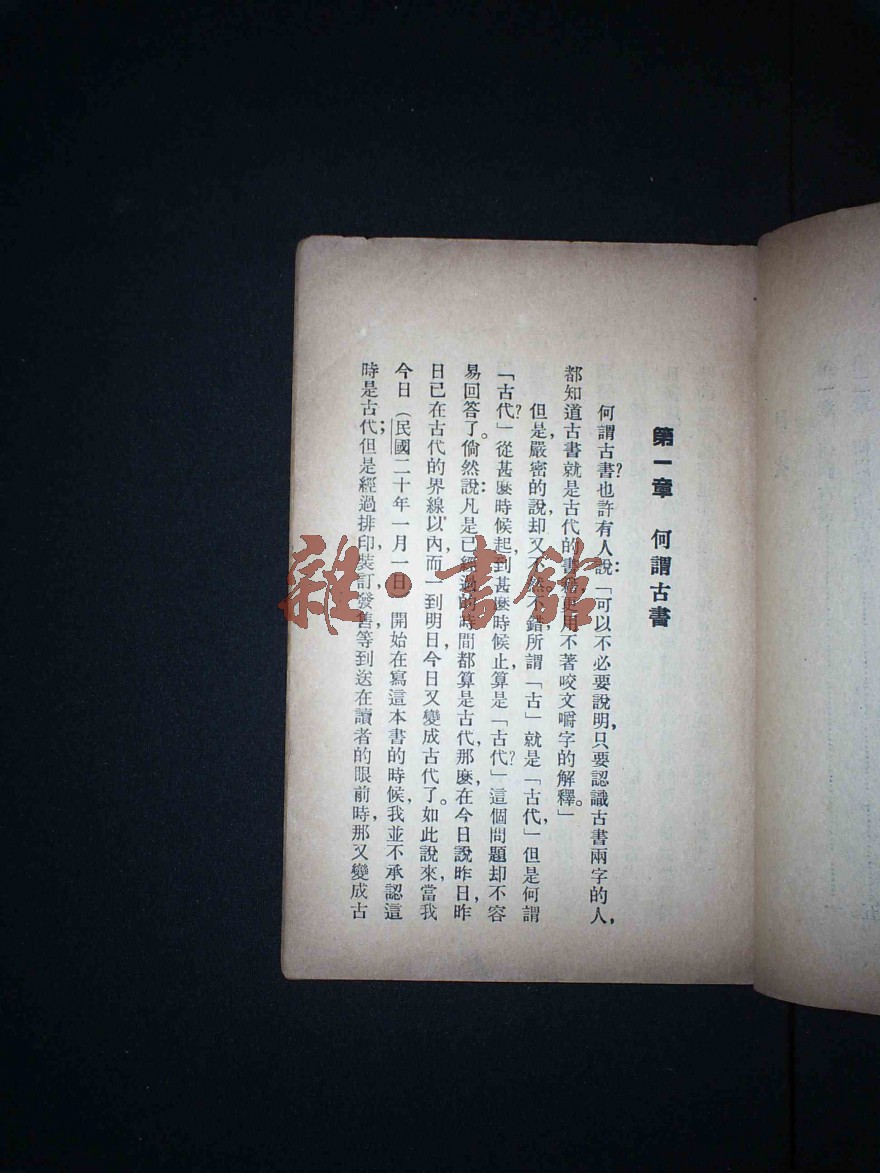 第一章　何謂古書
何謂古書？也許有人說：「可以不必要說明，只要認識古書兩字的人，
都知道古書就是古代的書籍，更用不著咬文嚼字的解釋。」
但是，嚴密的說，却又不然。不錯，所謂「古」就是「古代」，但是何謂
「古代？」從甚麼時候起，到甚麼時候止，算是「古代？」這個問題却不容
易回答了。倘然說：凡是已經過的時間都算是古代，那麼，在今日說昨日，昨
日已在古代的界線以內，而一到明日，今日又變成古代了。如此說來，當我
今日（民國二十年一月一日）開始在寫這本書的時候，我並不承認這
時是古代；但是，經過排印，裝訂，發售等，到送在讀者的眼前時，那又變成古
雜·書館